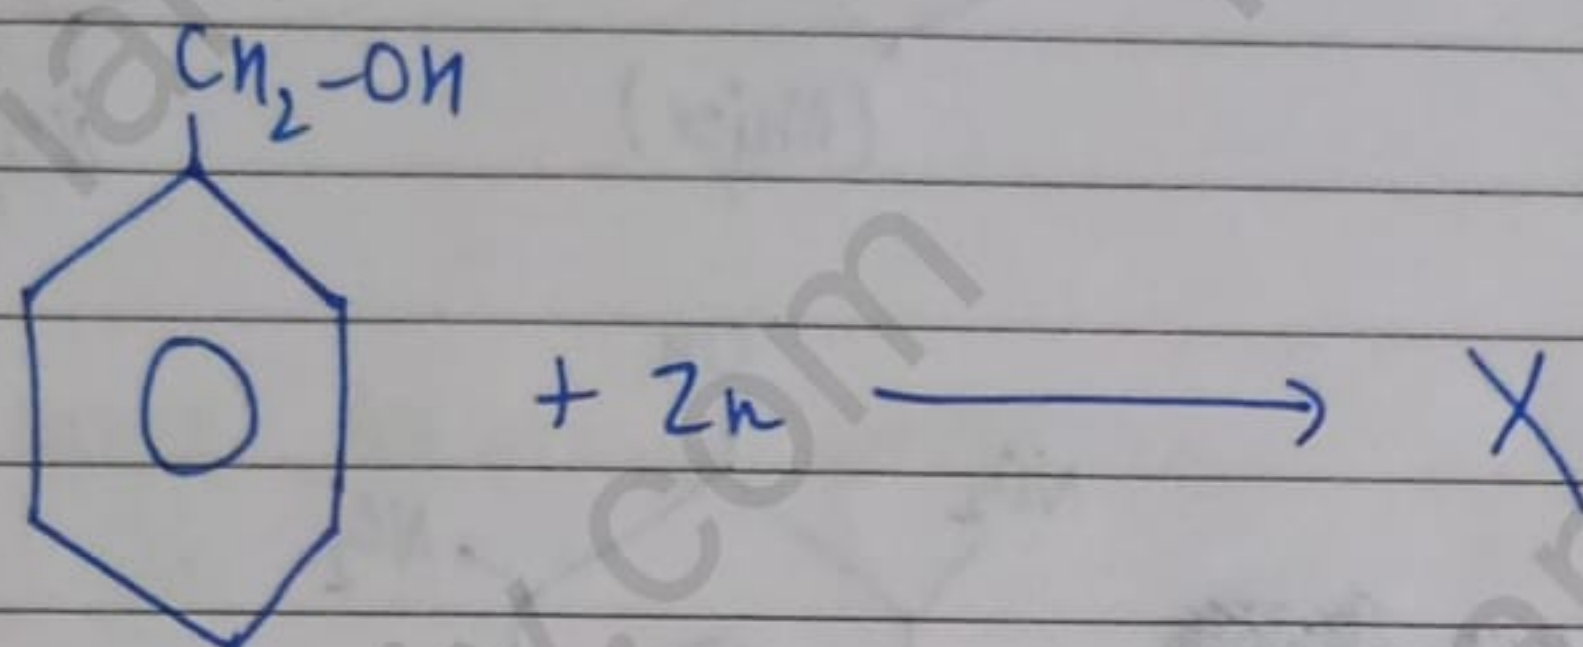 CH₂-OH
+ Zn → X